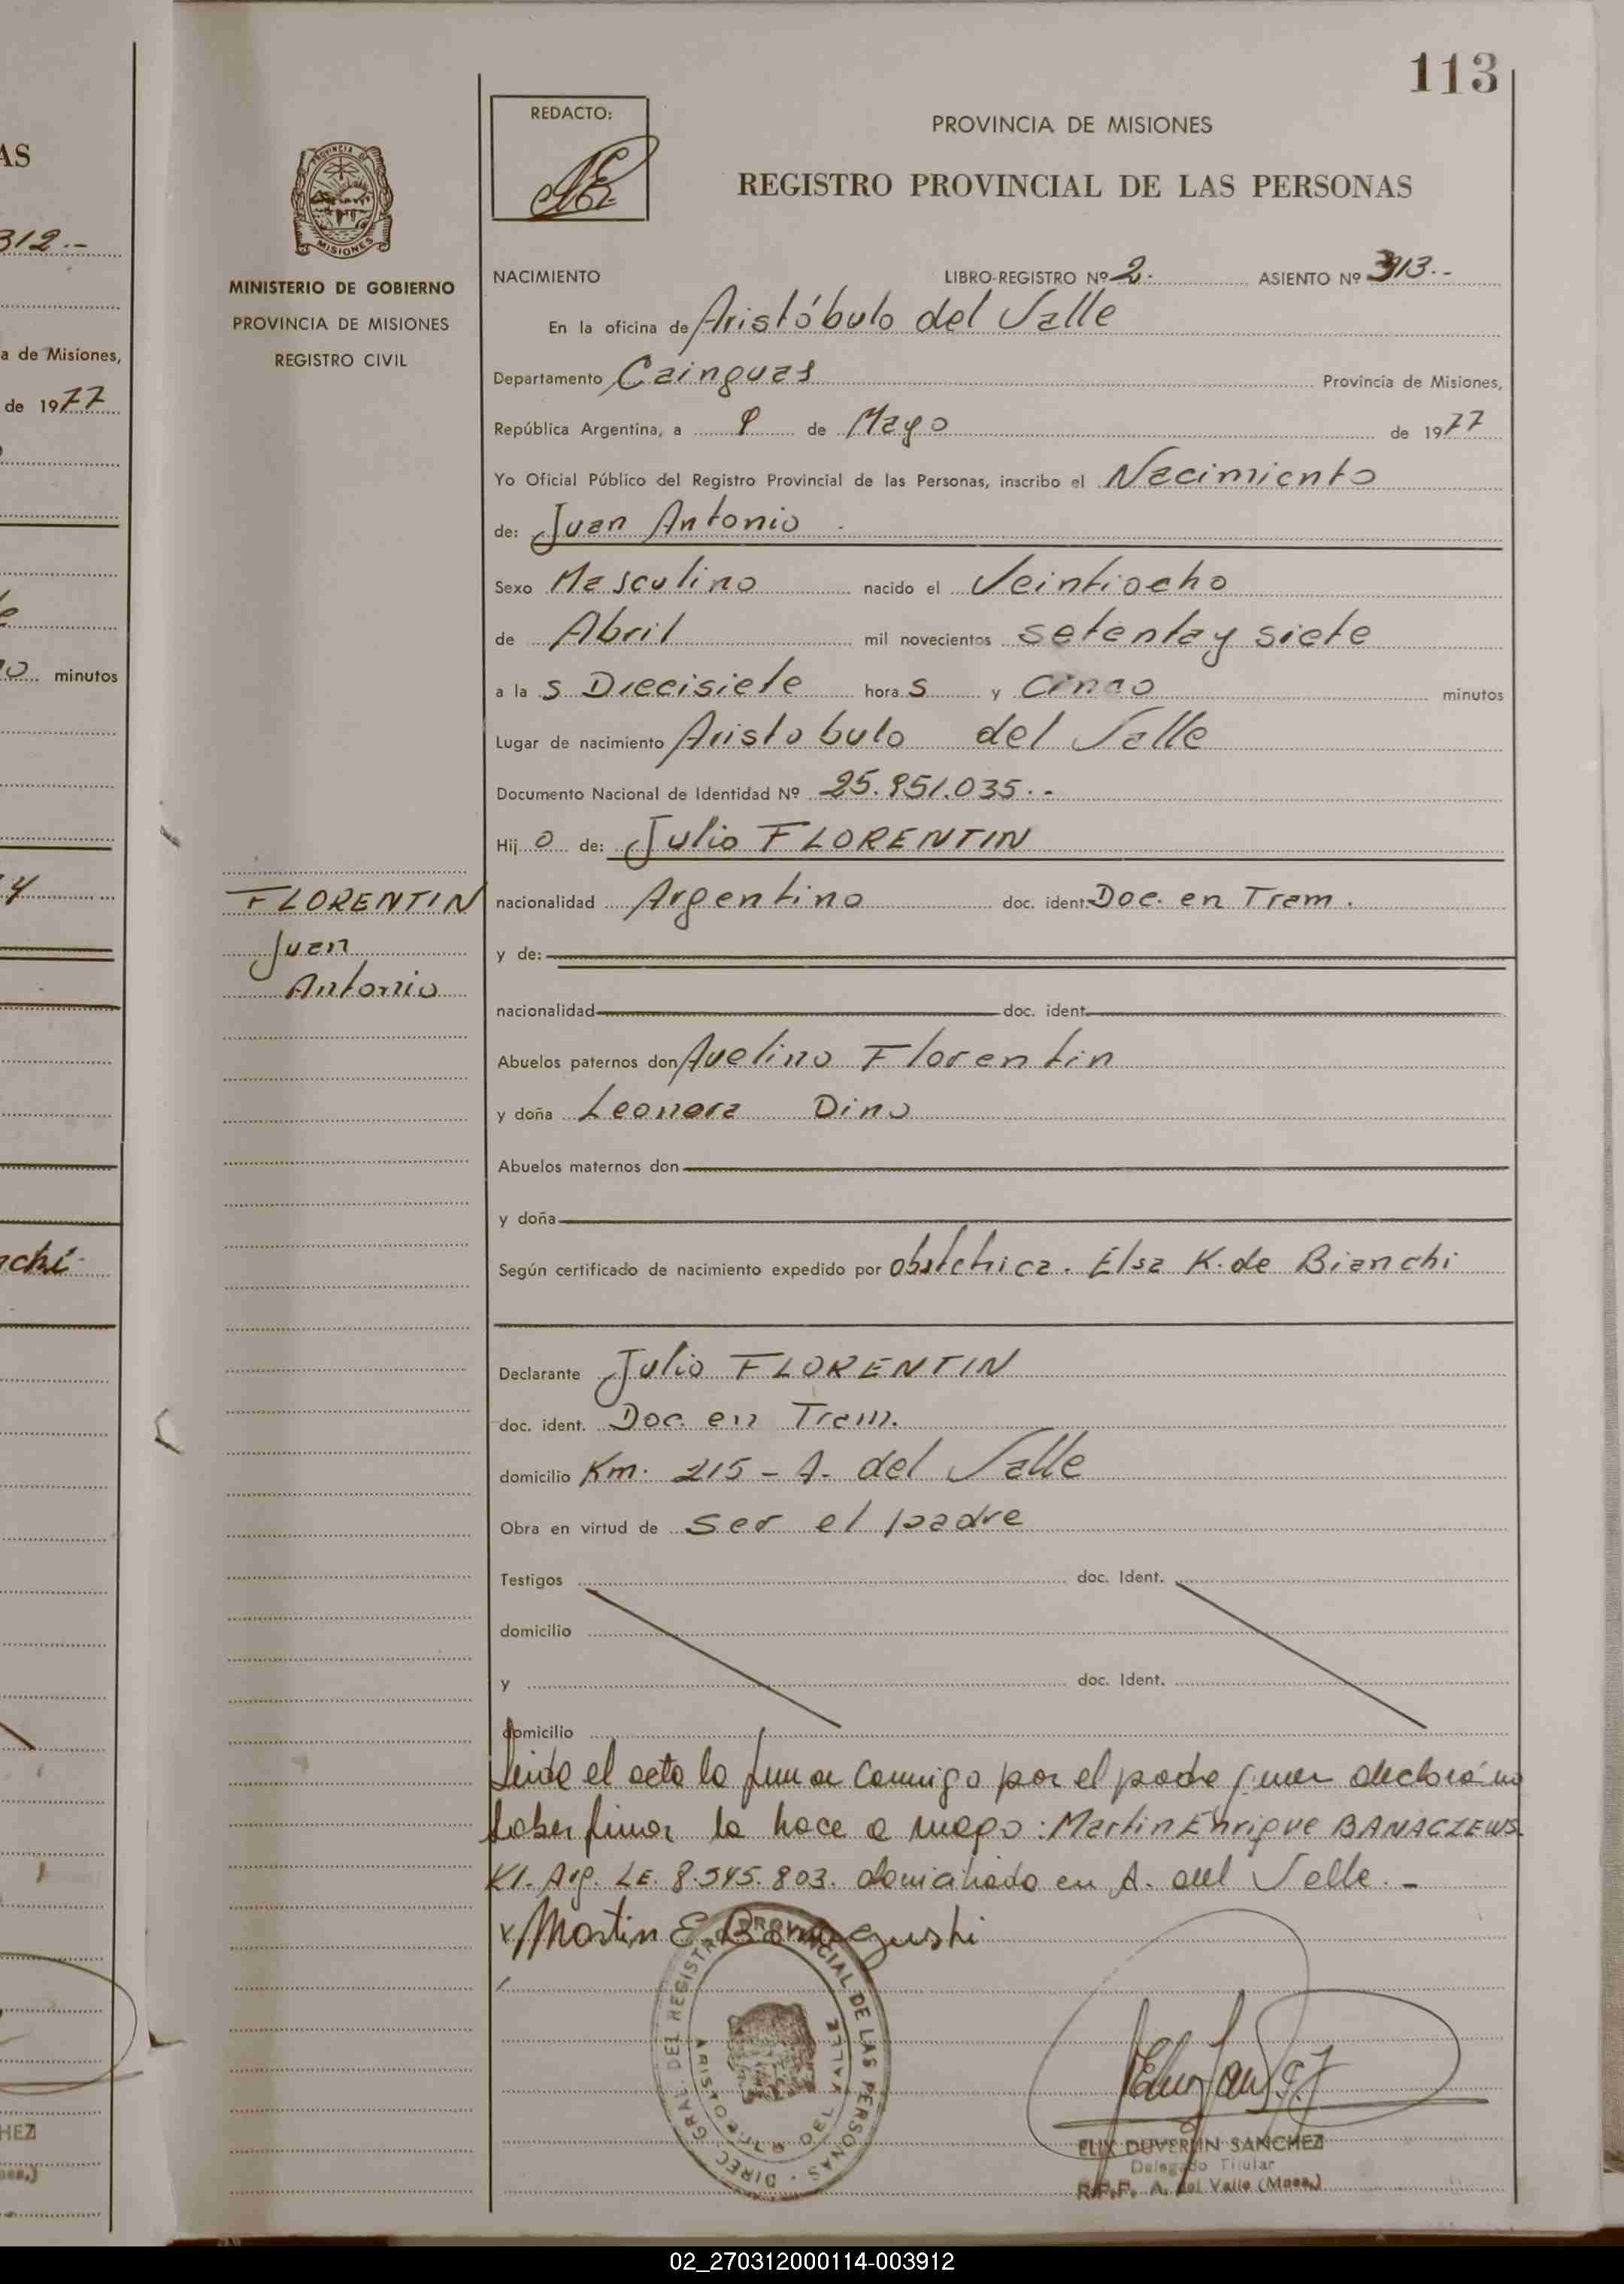 AS
312.-
a de Misiones,
de 1977
minutos
chi
HEZ
113
REDACTO:
PROVINCIA DE MISIONES
REGISTRO PROVINCIAL DE LAS PERSONAS
PROVINCIA DE
MISIONES
MINISTERIO DE GOBIERNO
PROVINCIA DE MISIONES
REGISTRO CIVIL
NACIMIENTO LIBRO-REGISTRO Nº 2. ASIENTO Nº 313.-
En la oficina de Aristóbulo del Valle
Departamento Cainguas Provincia de Misiones,
República Argentina, a 9 de Mayo de 1977
Yo Oficial Público del Registro Provincial de las Personas, inscribo el Nacimiento
de: Juan Antonio
Sexo Masculino nacido el Veintiocho
de Abril mil novecientos setenta y siete
a la s Diecisiete hora s y Cinco minutos
Lugar de nacimiento Aristobulo del Valle
Documento Nacional de Identidad Nº 25.951.035.-
Hij o de: Julio FLORENTIN
FLORENTIN
Juan
Antonio
nacionalidad Argentino doc. ident. Doc. en Tram.
y de:
nacionalidad doc. ident.
Abuelos paternos don Avelino Florentin
y doña Leonora Dino
Abuelos maternos don
y doña
Según certificado de nacimiento expedido por obstetrica. Elsa K. de Bianchi
Declarante Julio FLORENTIN
doc. ident. Doc. en Tram.
domicilio Km. 215 - A. del Valle
Obra en virtud de ser el padre
Testigos doc. Ident.
domicilio
y doc. Ident.
domicilio
Leida el acta la firma conmigo por el padre quien declara no
saber firmar lo hace a ruego: Martin Enrique BANACZEWS
KI. Arg. LE. 8.545.803. domiciliado en A. del Valle.-
Martin E.
DIREC. GRAL. DEL REGISTRO PROVINCIAL DE LAS PERSONAS
ARISTOBULO DEL VALLE
ELIX DUVERLIN SANCHEZ
Delegado Titular
R.P.P. A. del Valle (Mnes.)
02_270312000114-003912